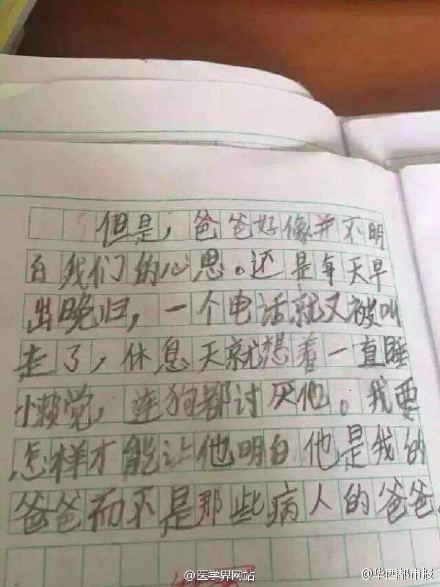 但是，爸爸好像并不明
白我们的心思。还是每天早
出晚归，一个电话就又被叫
走了，休息天就想着一直睡
懒觉，连狗都讨厌他。我要
怎样才能让他明白他是我的
爸爸而不是那些病人的爸爸。
@医学界网站
@华西都市报